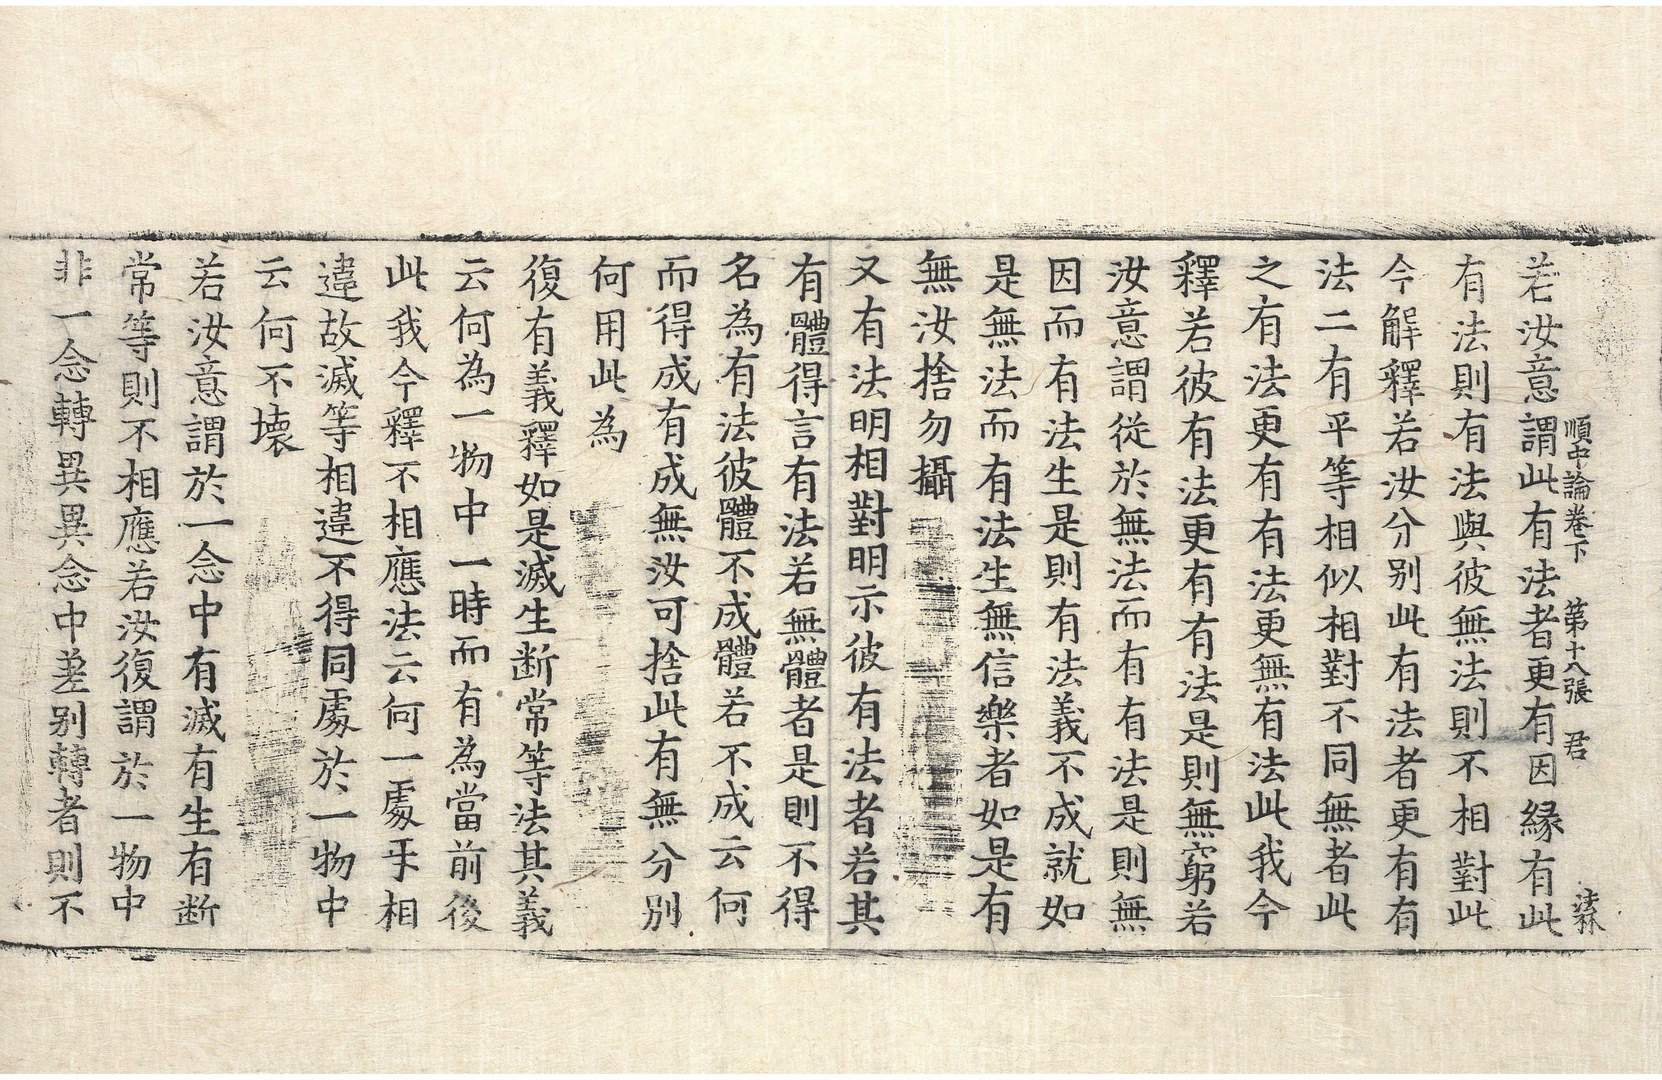 順中論卷下　第十八張　君
法林
若汝意謂此有法者更有因緣有此
有法則有法與彼無法則不相對此
今解釋若汝分別此有法者更有有
法二有平等相似相對不同無者此
之有法更有有法更無有法此我今
釋若彼有法更有有法是則無窮若
汝意謂從於無法而有有法是則無
因而有法生是則有法義不成就如
是無法而有法生無信樂者如是有
無汝捨勿攝
又有法明相對明示彼有法者若其
有體得言有法若無體者是則不得
名為有法彼體不成體若不成云何
而得成有成無汝可捨此有無分別
何用此為
復有義釋如是滅生斷常等法其義
云何為一物中一時而有為當前後
此我今釋不相應法云何一處手相
違故滅等相違不得同處於一物中
云何不壞
若汝意謂於一念中有滅有生有斷
常等則不相應若汝復謂於一物中
非一念轉異異念中差别轉者則不